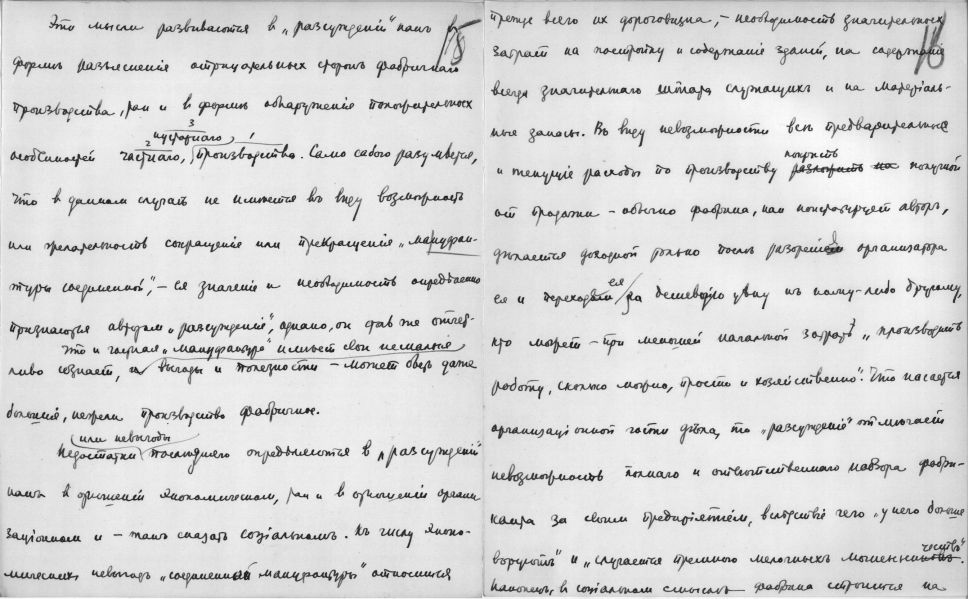 15
Эти мысли развиваются в „разсужденiи" какъ въ
формѣ разъясненiя отрицательныхъ сторонъ фабричнаго
производства, такъ и в формѣ обнаруженiя положительныхъ
3
кустарнаго
2 1
особенностей частнаго, производства. Само собою разумѣется,
что в данном случаѣ не имѣется въ виду возможность
или желательность сокращенiя или прекращенiя „мануфак-
туры соединенной", – ея значенiе и необходимость опредѣленно
признаются автором „разсужденiя", однако, он так же отчет-
что и частная „мануфактура" имѣет свои немалыя
ливо сознает, выгоды и полезности – может быть даже
большiя, нежели производство фабричное.
или невыгоды
Недостатки послѣдняго опредѣляются в „разсужденiи"
какъ в отношенiи экономическом, так и в отношенiи органи
зацiонном и – такъ сказать соцiальномъ. Къ числу эконо-
мических невыгодъ „соединенной мануфактуры" относится
16
прежде всего их дороговизна, – необходимость значительных
затрат на постройку и содержанiе зданiй, на содержанiе
всегда значительнаго штата служащихъ и на матерiаль-
ные запасы. Въ виду невозможности всѣ предварительные
покрыть
и текущiе расходы по производству разложить на покупной
от продажи – обычно фабрика, как констатируетъ авторъ,
дѣлается доходной только послѣ разоренiя организатора
ея
ея и перехода за дешевую цѣну къ кому-либо другому,
кто может – при меньшей начальной затратѣ „производить
работу, сколько можно, просто и хозяйственно". Что касается
организацiонной части дѣла, то „разсужденiе" отмѣчает
невозможность полнаго и отвѣтственнаго надзора фабри-
канта за своим предпрiятiем, вслѣдствiе чего „у него больше
чествъ"
воруютъ" и „случается премного мелочныхъ мошенни.
Наконецъ, в соцiальном смыслѣ фабрика строится на